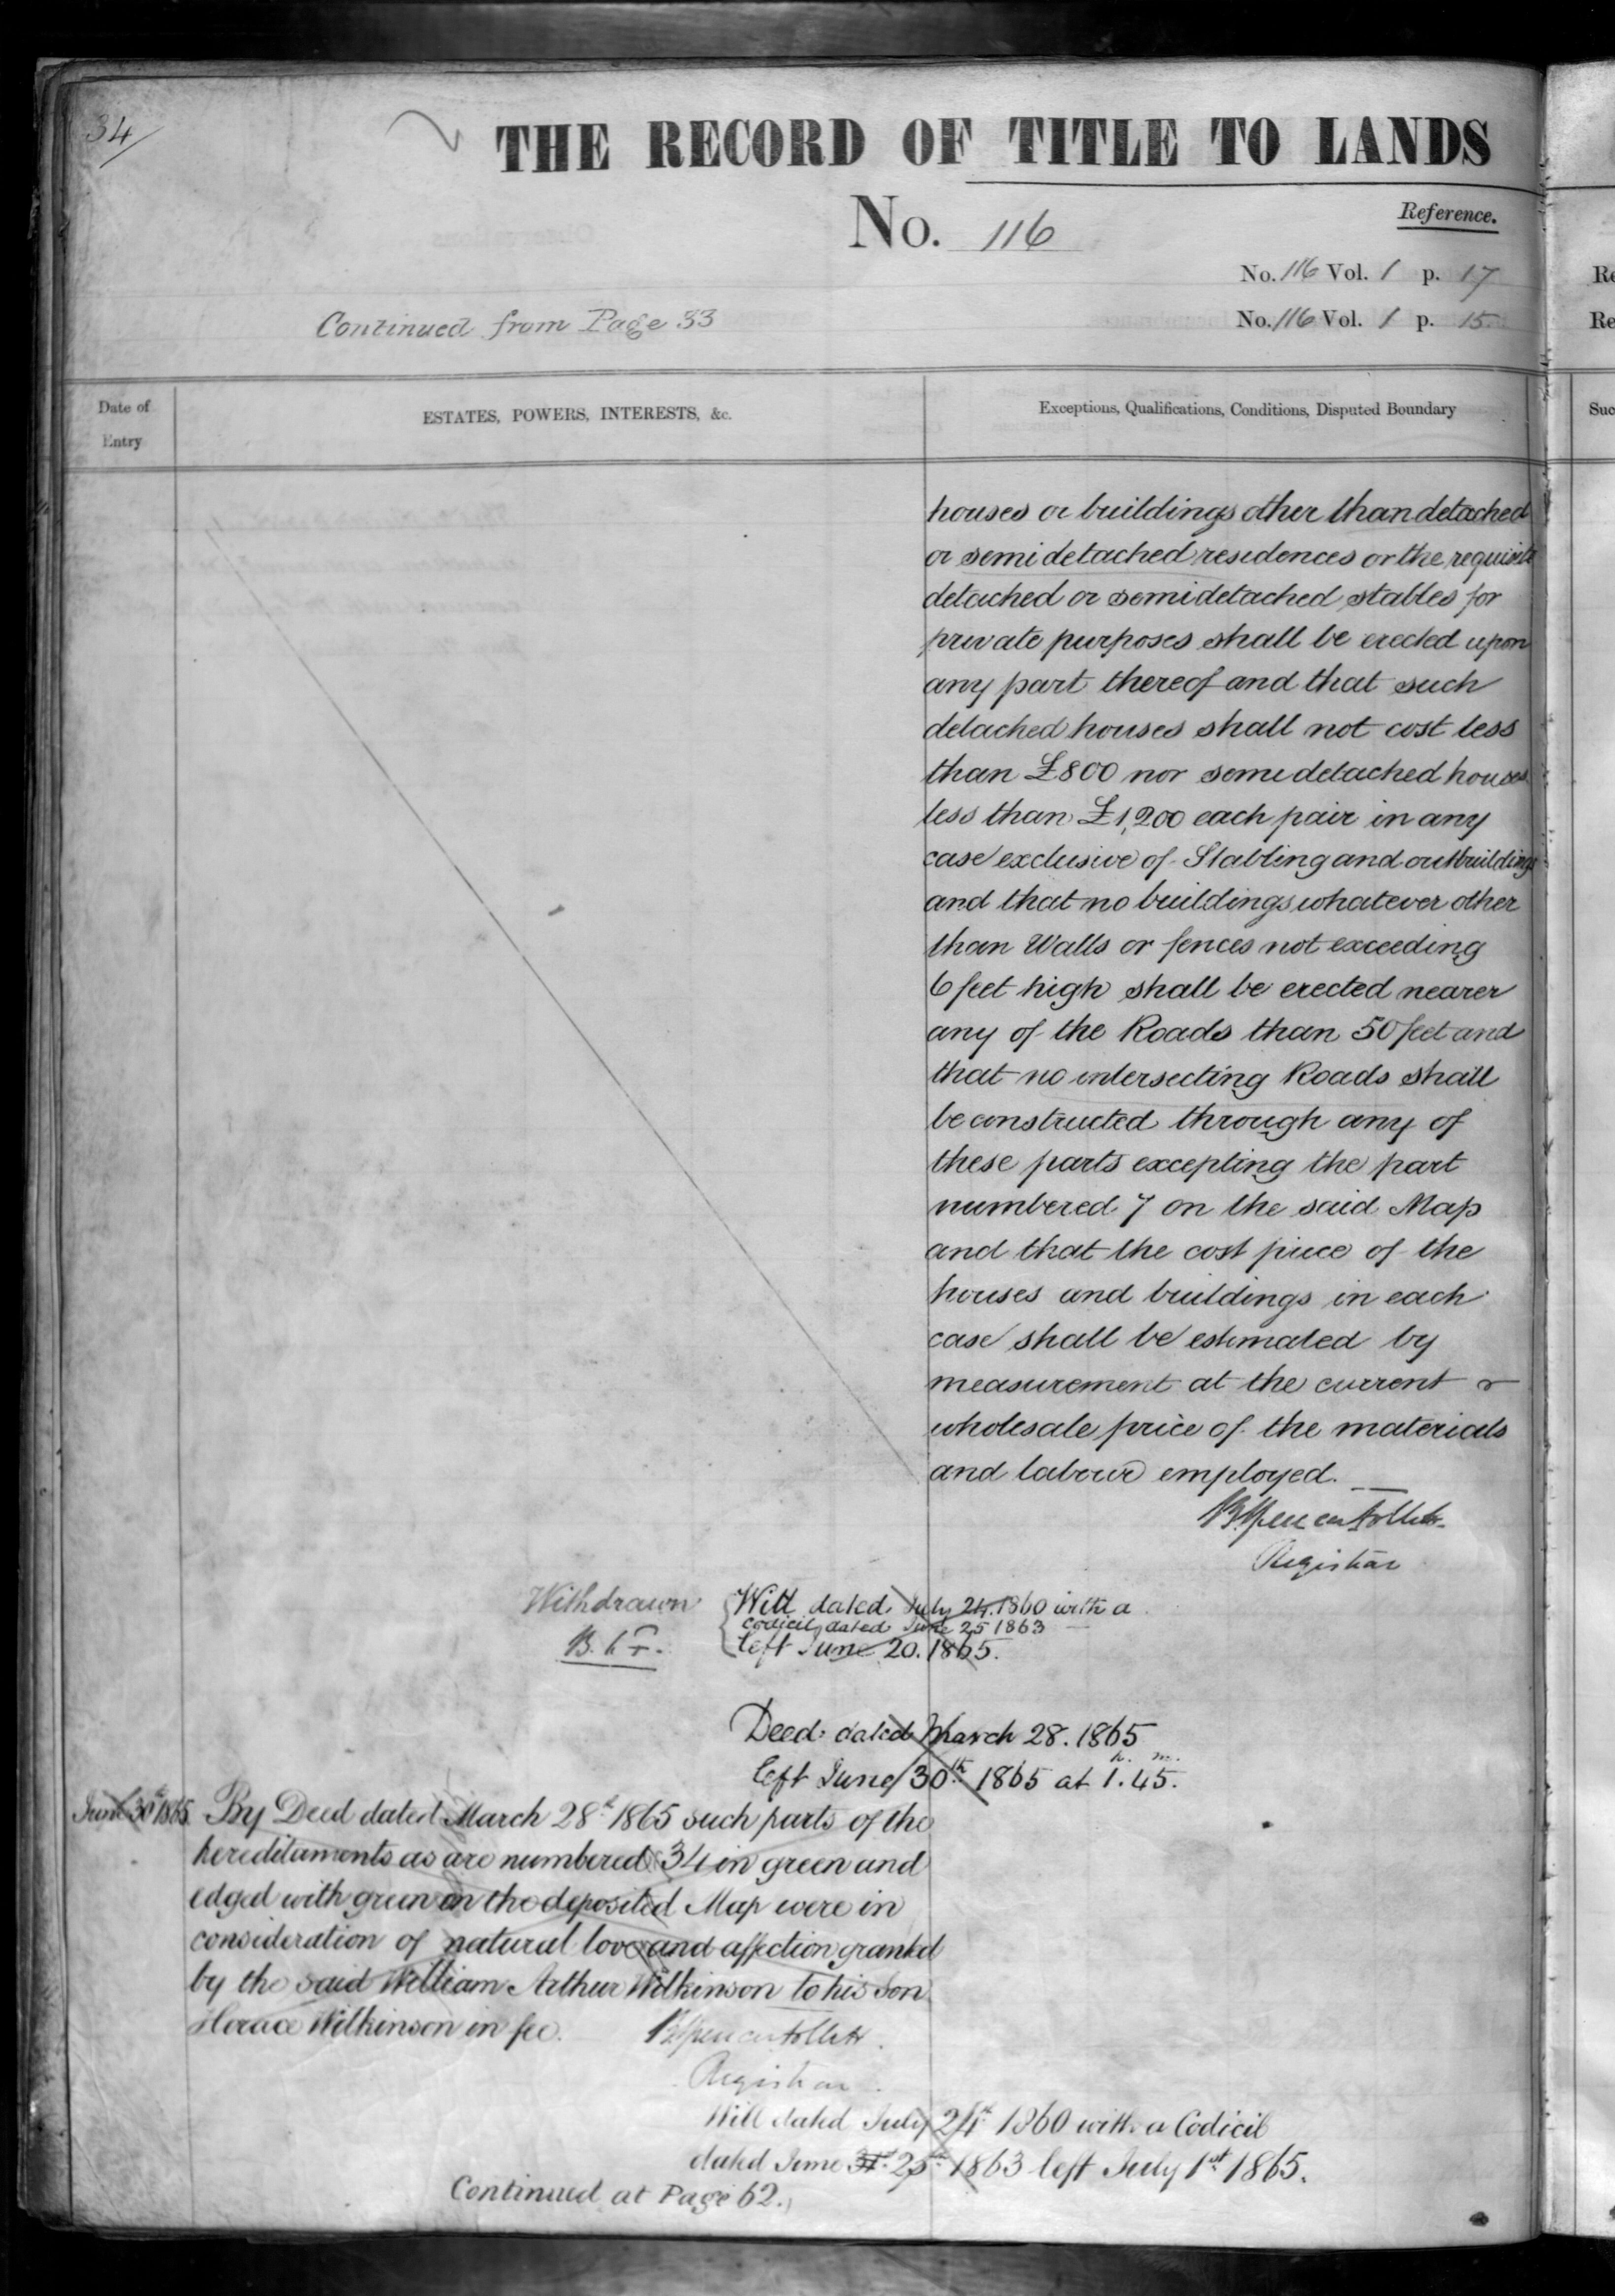 34
THE RECORD OF TITLE TO LANDS
No. 116
Reference.
No. 116 Vol. 1 p. 17
No. 116 Vol. 1 p. 15
Continued from Page 33
Date of Entry
ESTATES, POWERS, INTERESTS, &c.
Exceptions, Qualifications, Conditions, Disputed Boundary
houses or buildings other than detached
or semi detached residences or the requisite
detached or semidetached stables for
private purposes shall be erected upon
any part thereof and that such
detached houses shall not cost less
than £800 nor semi detached houses
less than £1,200 each pair in any
case exclusive of Stabling and outbuildings
and that no buildings whatever other
than Walls or fences not exceeding
6 feet high shall be erected nearer
any of the Roads than 50 feet and
that no intersecting Roads shall
be constructed through any of
these parts excepting the part
numbered 7 on the said Map
and that the cost price of the
houses and buildings in each
case shall be estimated by
measurement at the current
wholesale price of the materials
and labour employed.
Registrar
Withdrawn
Will dated July 24. 1860 with a
codicil dated June 25 1863
left June 20. 1865.
Deed dated March 28. 1865
left June 30th 1865 at 1h. 45m.
June 30th 1865
By Deed dated March 28th 1865 such parts of the
hereditaments as are numbered 34 in green and
edged with green on the deposited Map were in
consideration of natural love and affection granted
by the said William Arthur Wilkinson to his Son
Horace Wilkinson in fee.
Registrar
Will dated July 24th 1860 with a Codicil
dated June 25th 1863 left July 1st 1865.
Continued at Page 62.
Re
Re
Suc